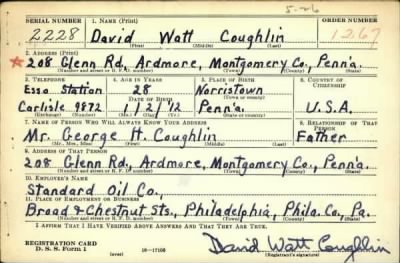 5-26
SERIAL NUMBER 1. NAME (Print) ORDER NUMBER
2228 David Watt Coughlin 1267
(First) (Middle) (Last)
2. ADDRESS (Print)
☆ 208 Glenn Rd., Ardmore, Montgomery Co., Penn'a.
(Number and street or R. F. D. number) (Town) (County) (State)
3. TELEPHONE 4. AGE IN YEARS 5. PLACE OF BIRTH 6. COUNTRY OF CITIZENSHIP
Esso Station 28 Norristown
DATE OF BIRTH
Carlisle 9872 1/21/12 Penn'a. U.S.A.
7. NAME OF PERSON WHO WILL ALWAYS KNOW YOUR ADDRESS 8. RELATIONSHIP OF THAT PERSON
Mr. George H. Coughlin Father
(Mr., Mrs., Miss) (First) (Middle) (Last)
9. ADDRESS OF THAT PERSON
208 Glenn Rd., Ardmore, Montgomery Co., Penn'a.
(Number and street or R. F. D. number) (Town) (County) (State)
10. EMPLOYER'S NAME
Standard Oil Co.,
11. PLACE OF EMPLOYMENT OR BUSINESS
Broad & Chestnut Sts., Philadelphia, Phila. Co., Pa.
(Number and street or R. F. D. number) (Town) (County) (State)
I AFFIRM THAT I HAVE VERIFIED ABOVE ANSWERS AND THAT THEY ARE TRUE.
REGISTRATION CARD
D. S. S. Form 1 (over) 16—17105 David Watt Coughlin
(Registrant's signature)